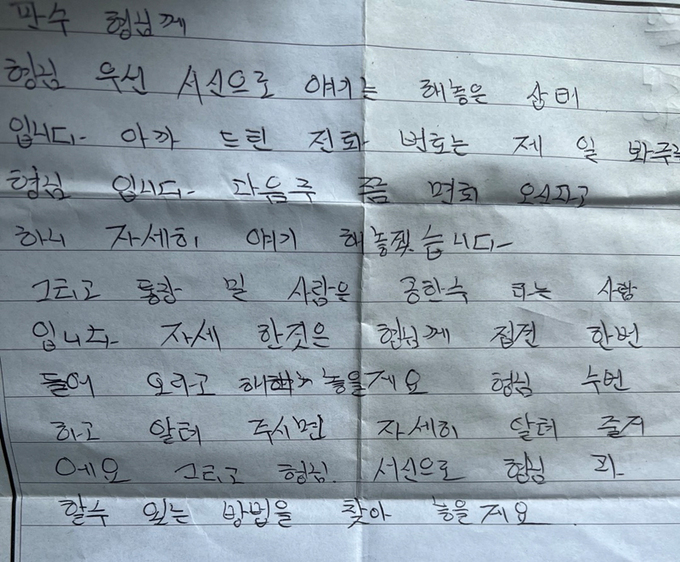 판수 형님께
형님 우선 서신으로 얘기는 해놓은 상태
입니다- 아까 드린 전화 번호는 제 일 봐주
형님 입니다- 다음주 쯤 면회 오신다고
하니 자세히 얘기 해놓겠습니다-
그리고 통장 밑 사람은 공한수 라는 사람
입니다. 자세 한것은 형님께 접견 한번
들어 오라고 해 놓을게요 형님 수번
하고 알려 주시면 자세히 알려 줄거
에요 그리고 형님. 서신으로 형님
할수 있는 방법을 찾아 놓을게요.